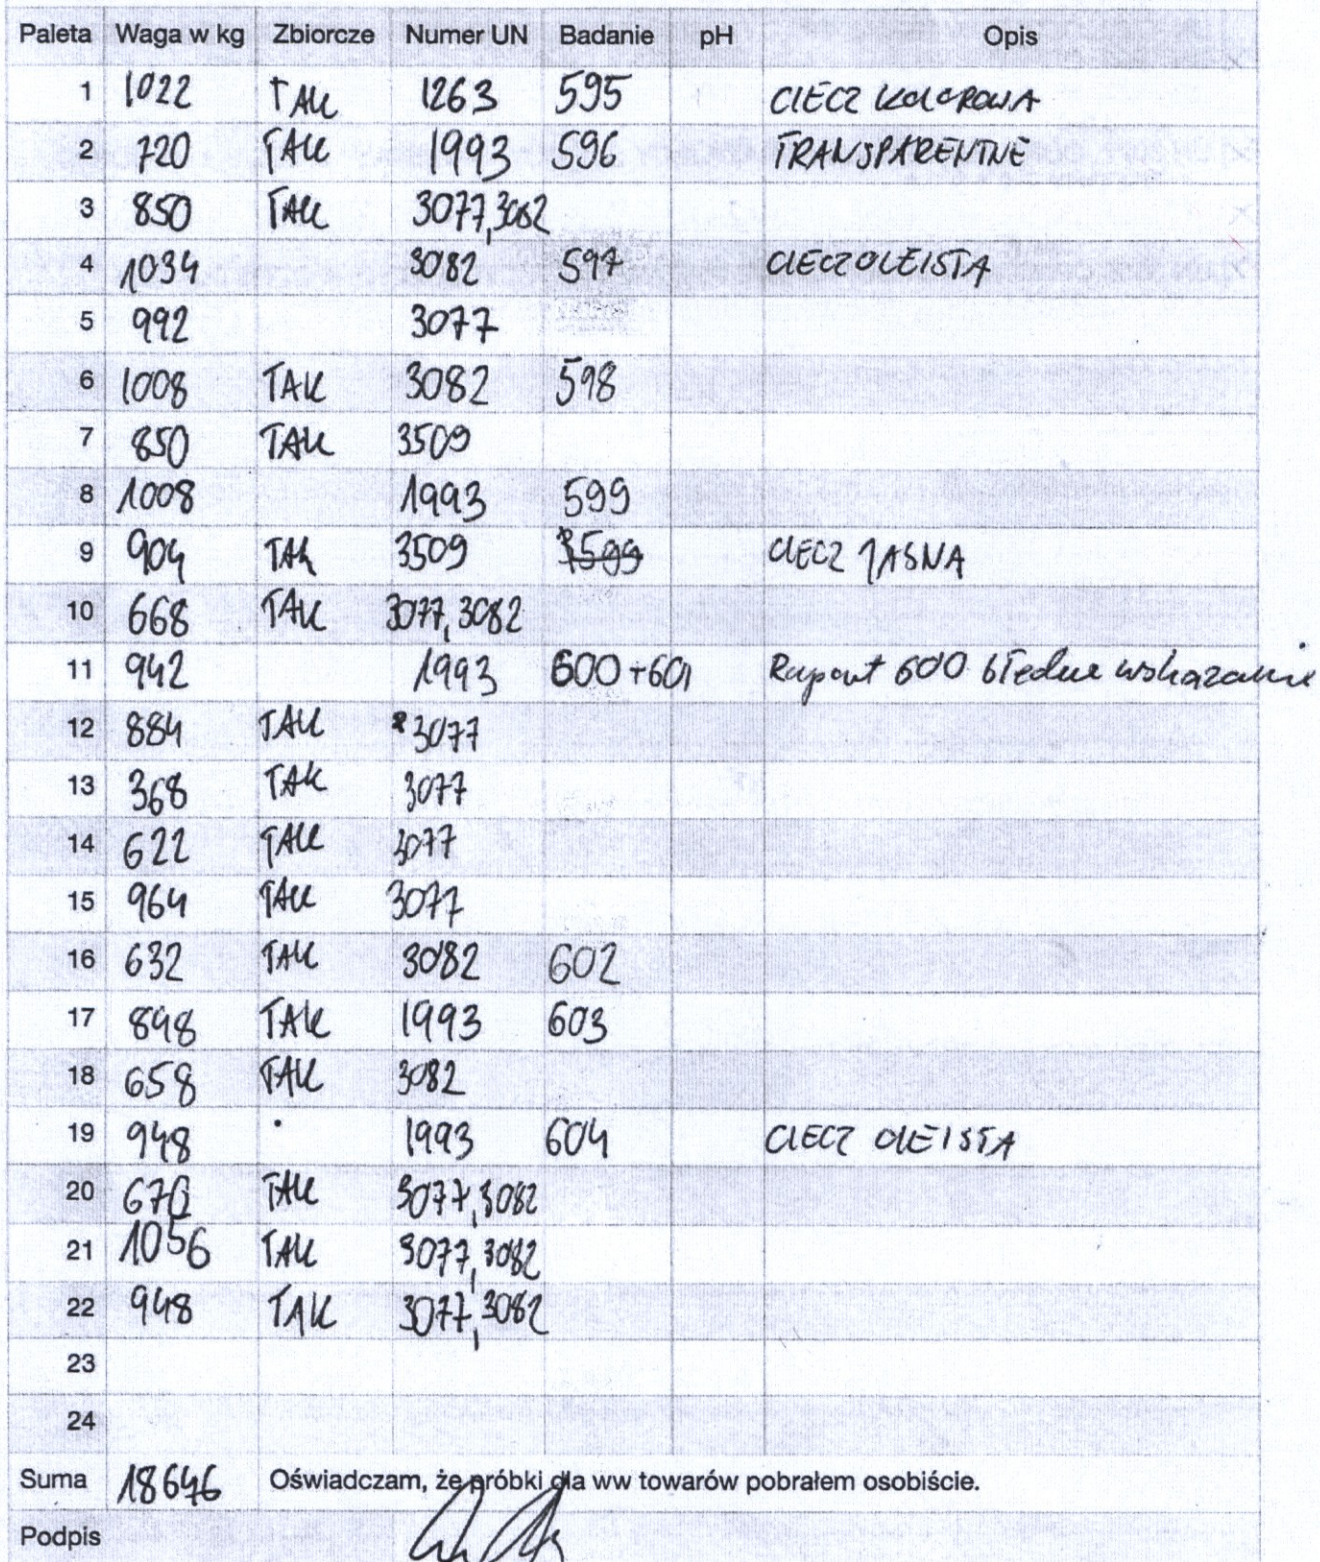 Paleta Waga w kg Zbiorcze Numer UN Badanie pH Opis
1 1022 TAK 1263 595 CIECZ KOLOROWA
2 720 TAK 1993 596 TRANSPARENTNE
3 850 TAK 3077,3082
4 1034 3082 597 CIECZ OLEISTA
5 992 3077
6 1008 TAK 3082 598
7 850 TAK 3509
8 1008 1993 599
9 904 TAK 3509 599 CIECZ JASNA
10 668 TAK 3077,3082
11 942 1993 600+601 Raport 600 błędne wskazanie
12 884 TAK 3077
13 368 TAK 3077
14 622 TAK 3077
15 964 TAK 3077
16 632 TAK 3082 602
17 898 TAK 1993 603
18 658 TAK 3082
19 948 1993 604 CIECZ OLEISTA
20 670 TAK 3077,3082
21 1056 TAK 3077,3082
22 948 TAK 3077,3082
23
24
Suma 18646 Oświadczam, że próbki dla ww towarów pobrałem osobiście.
Podpis